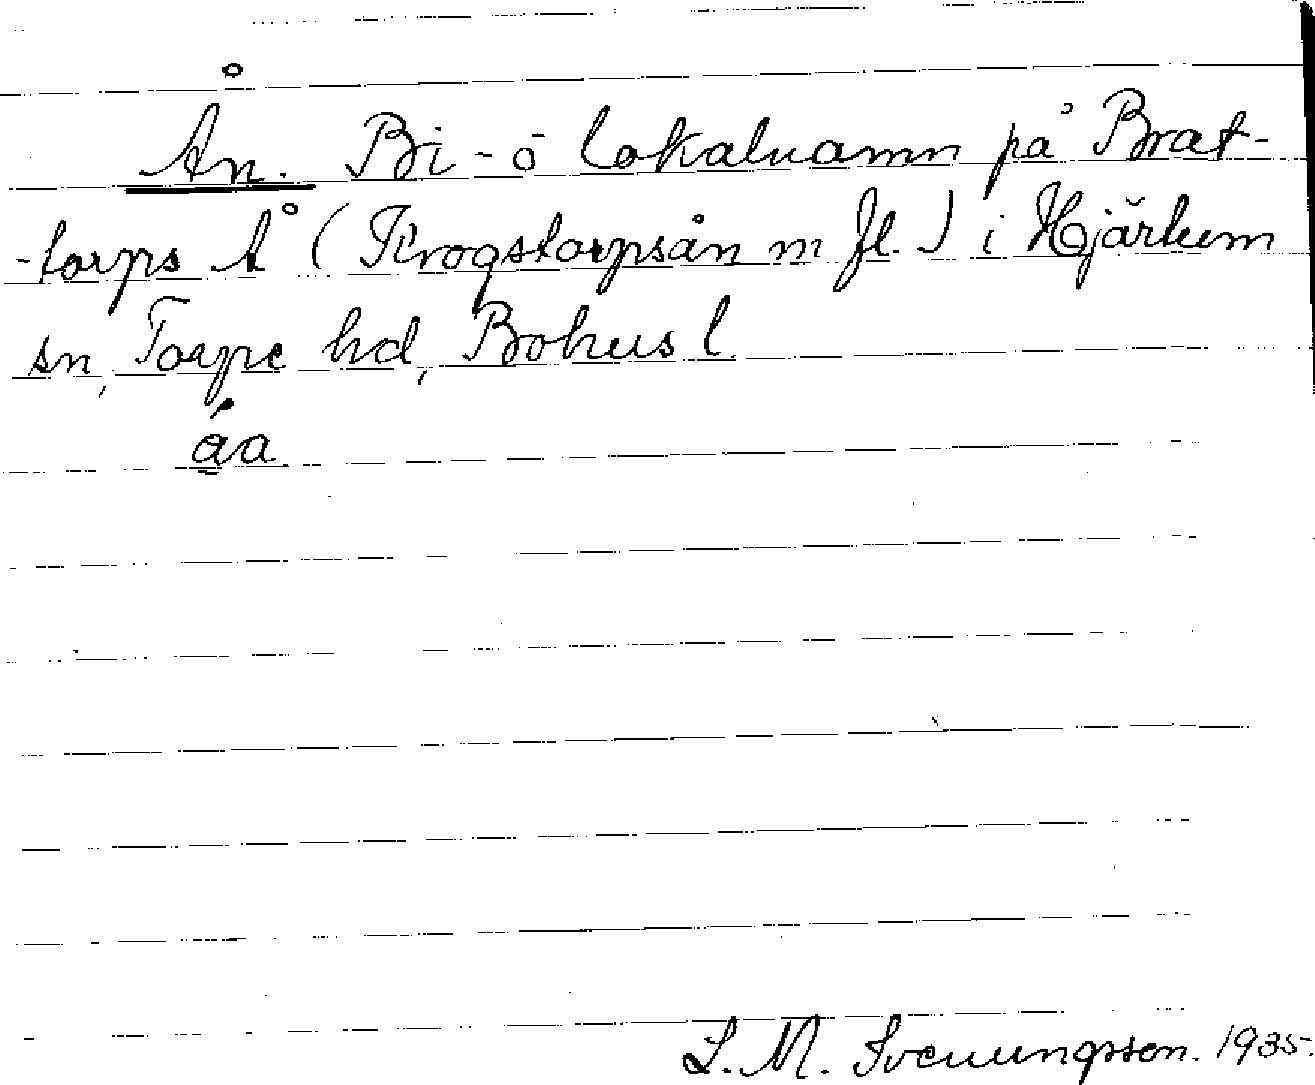 Ån. Bi-o lokalnamn på Brat-
-torps Å (Krogstorpsån m fl.) i Hjärtum
sn, Torpe hd, Bohus l.
åa
L. M. Svenungsson. 1935.